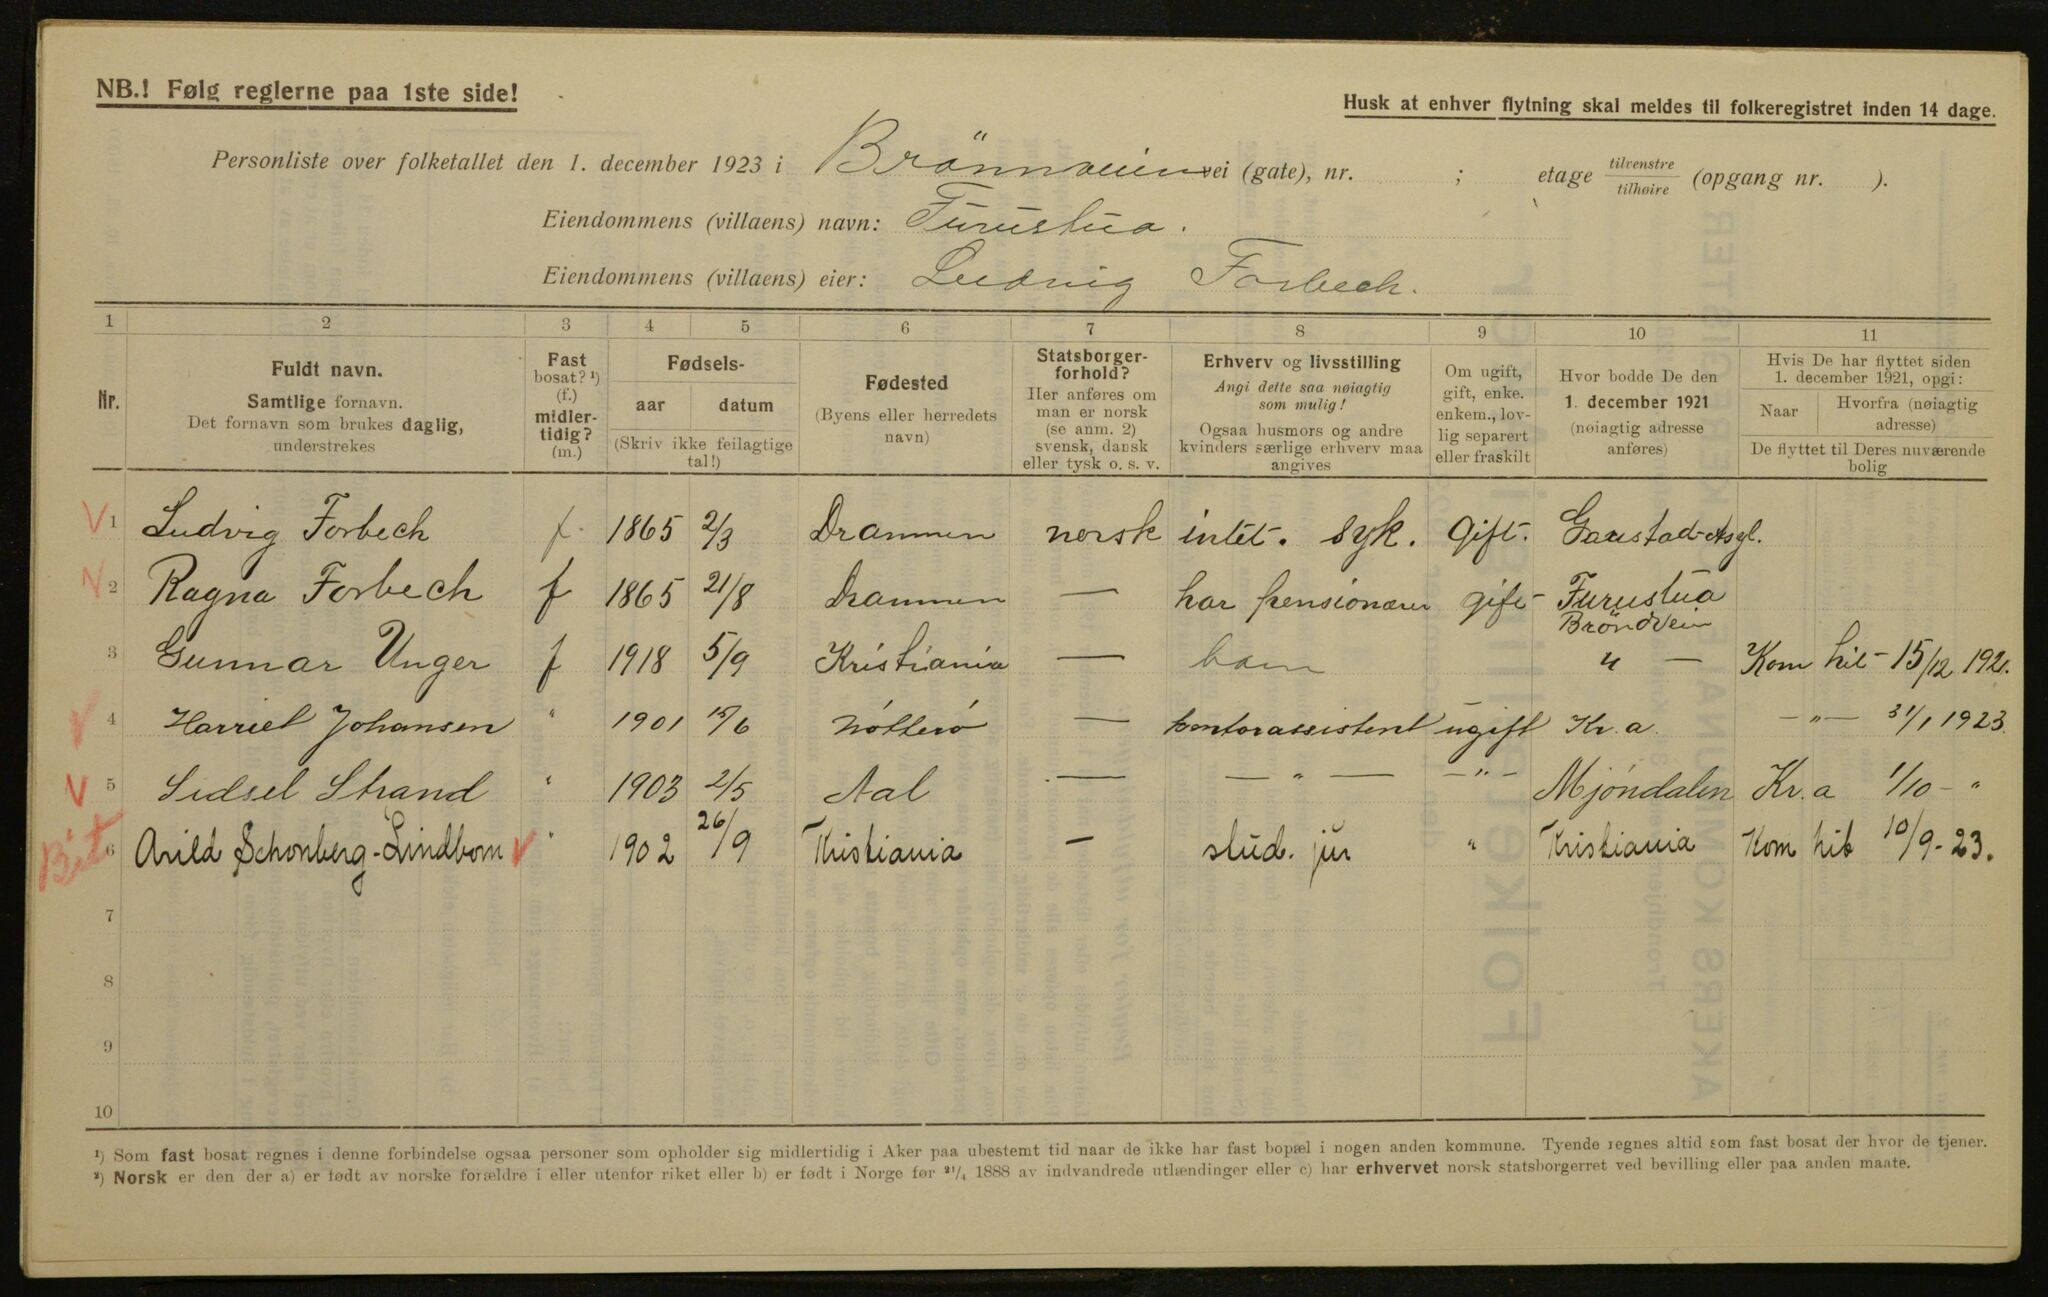 NB.! Følg reglerne paa 1ste side!
Husk at enhver flytning skal meldes til folkeregistret inden 14 dage.
Personliste over folketallet den 1. december 1923 i Brönnveien vei (gate), nr. ; etage tilvenstre tilhøire (opgang nr. ).
Eiendommens (villaens) navn: Furustua.
Eiendommens (villaens) eier: Ludvig Forbech.
1 2 3 4 5 6 7 8 9 10 11
Nr.
Fuldt navn.
Samtlige fornavn.
Det fornavn som brukes daglig,
understrekes
Fast
bosat? ¹)
(f.)
midler-
tidig?
(m.)
Fødsels-
aar datum
(Skriv ikke feilagtige
tal!)
Fødested
(Byens eller herredets
navn)
Statsborger-
forhold?
Her anføres om
man er norsk
(se anm. 2)
svensk, dansk
eller tysk o. s. v.
Erhverv og livsstilling
Angi dette saa nøiagtig
som mulig!
Ogsaa husmors og andre
kvinders særlige erhverv maa
angives
Om ugift,
gift, enke.
enkem., lov-
lig separert
eller fraskilt
Hvor bodde De den
1. december 1921
(nøiagtig adresse
anføres)
Hvis De har flyttet siden
1. december 1921, opgi:
Naar Hvorfra (nøiagtig
adresse)
De flyttet til Deres nuværende
bolig
V 1 Ludvig Forbech f. 1865 2/3 Drammen norsk intet. syk. Gift. Gaustad Asyl.
V 2 Ragna Forbech f 1865 21/8 Drammen — har pensionærer gift Furustua
Brøndvein
3 Gunnar Unger f 1918 5/9 Kristiania — barn " — Kom hit 15/12 1921.
V 4 Harriet Johansen " 1901 15/6 Nötterö — kontorassistent ugift Kr.a. —"— 31/1 1923.
V 5 Sidsel Strand " 1903 2/5 Aal — — " — —"— Mjöndalen Kr.a 1/10 - "
6 Arild Schonberg-Lindbom V " 1902 26/9 Kristiania — stud. jur " Kristiania Kom hit 10/9-23.
7
8
9
10
¹) Som fast bosat regnes i denne forbindelse ogsaa personer som opholder sig midlertidig i Aker paa ubestemt tid naar de ikke har fast bopæl i nogen anden kommune. Tyende regnes altid som fast bosat der hvor de tjener.
²) Norsk er den der a) er født av norske forældre i eller utenfor riket eller b) er født i Norge før ²¹/₄ 1888 av indvandrede utlændinger eller c) har erhvervet norsk statsborgerret ved bevilling eller paa anden maate.